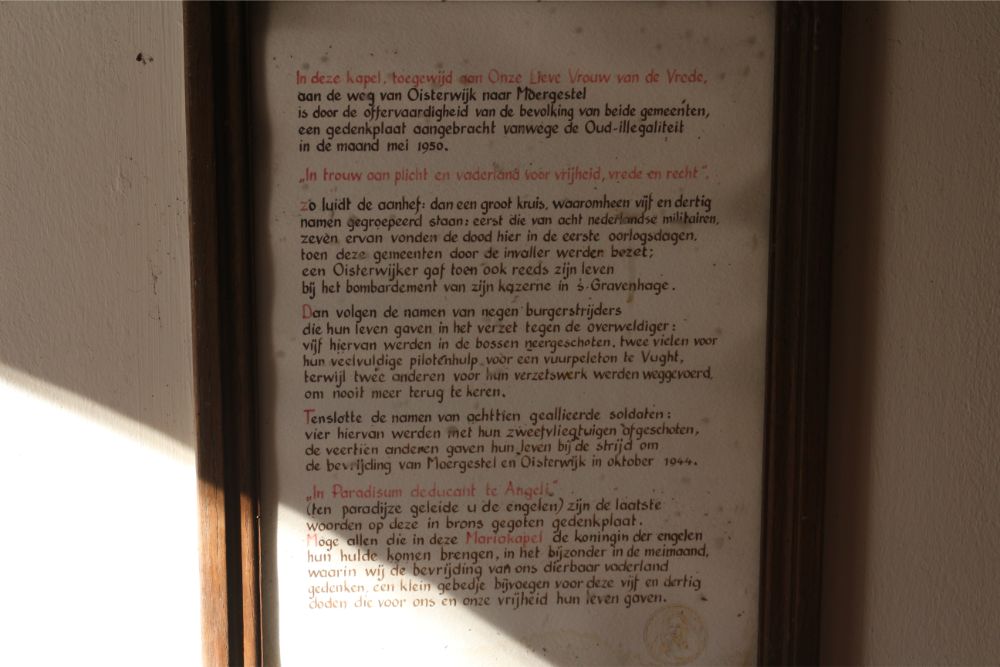 In deze kapel, toegewijd aan Onze Lieve Vrouw van de Vrede,
aan de weg van Oisterwijk naar Moergestel
is door de offervaardigheid van de bevolking van beide gemeenten,
een gedenkplaat aangebracht vanwege de Oud-illegaliteit
in de maand mei 1950.
„In trouw aan plicht en vaderland voor vrijheid, vrede en recht".
zo luidt de aanhef: dan een groot kruis, waaromheen vijf en dertig
namen gegroepeerd staan: eerst die van acht nederlandse militairen,
zeven ervan vonden de dood hier in de eerste oorlogsdagen,
toen deze gemeenten door de invaller werden bezet;
een Oisterwijker gaf toen ook reeds zijn leven
bij het bombardement van zijn kazerne in 's-Gravenhage.
Dan volgen de namen van negen burgerstrijders
die hun leven gaven in het verzet tegen de overweldiger:
vijf hiervan werden in de bossen neergeschoten, twee vielen voor
hun veelvuldige pilotenhulp voor een vuurpeleton te Vught,
terwijl twee anderen voor hun verzetswerk werden weggevoerd,
om nooit meer terug te keren.
Tenslotte de namen van achttien geallieerde soldaten:
vier hiervan werden met hun zweefvliegtuigen afgeschoten,
de veertien anderen gaven hun leven bij de strijd om
de bevrijding van Moergestel en Oisterwijk in oktober 1944.
„In Paradisum deducant te Angeli"
(ten paradijze geleide u de engelen) zijn de laatste
woorden op deze in brons gegoten gedenkplaat.
Moge allen die in deze Mariakapel de koningin der engelen
hun hulde komen brengen, in het bijzonder in de meimaand,
waarin wij de bevrijding van ons dierbaar vaderland
gedenken, een klein gebedje bijvoegen voor deze vijf en dertig
doden die voor ons en onze vrijheid hun leven gaven.